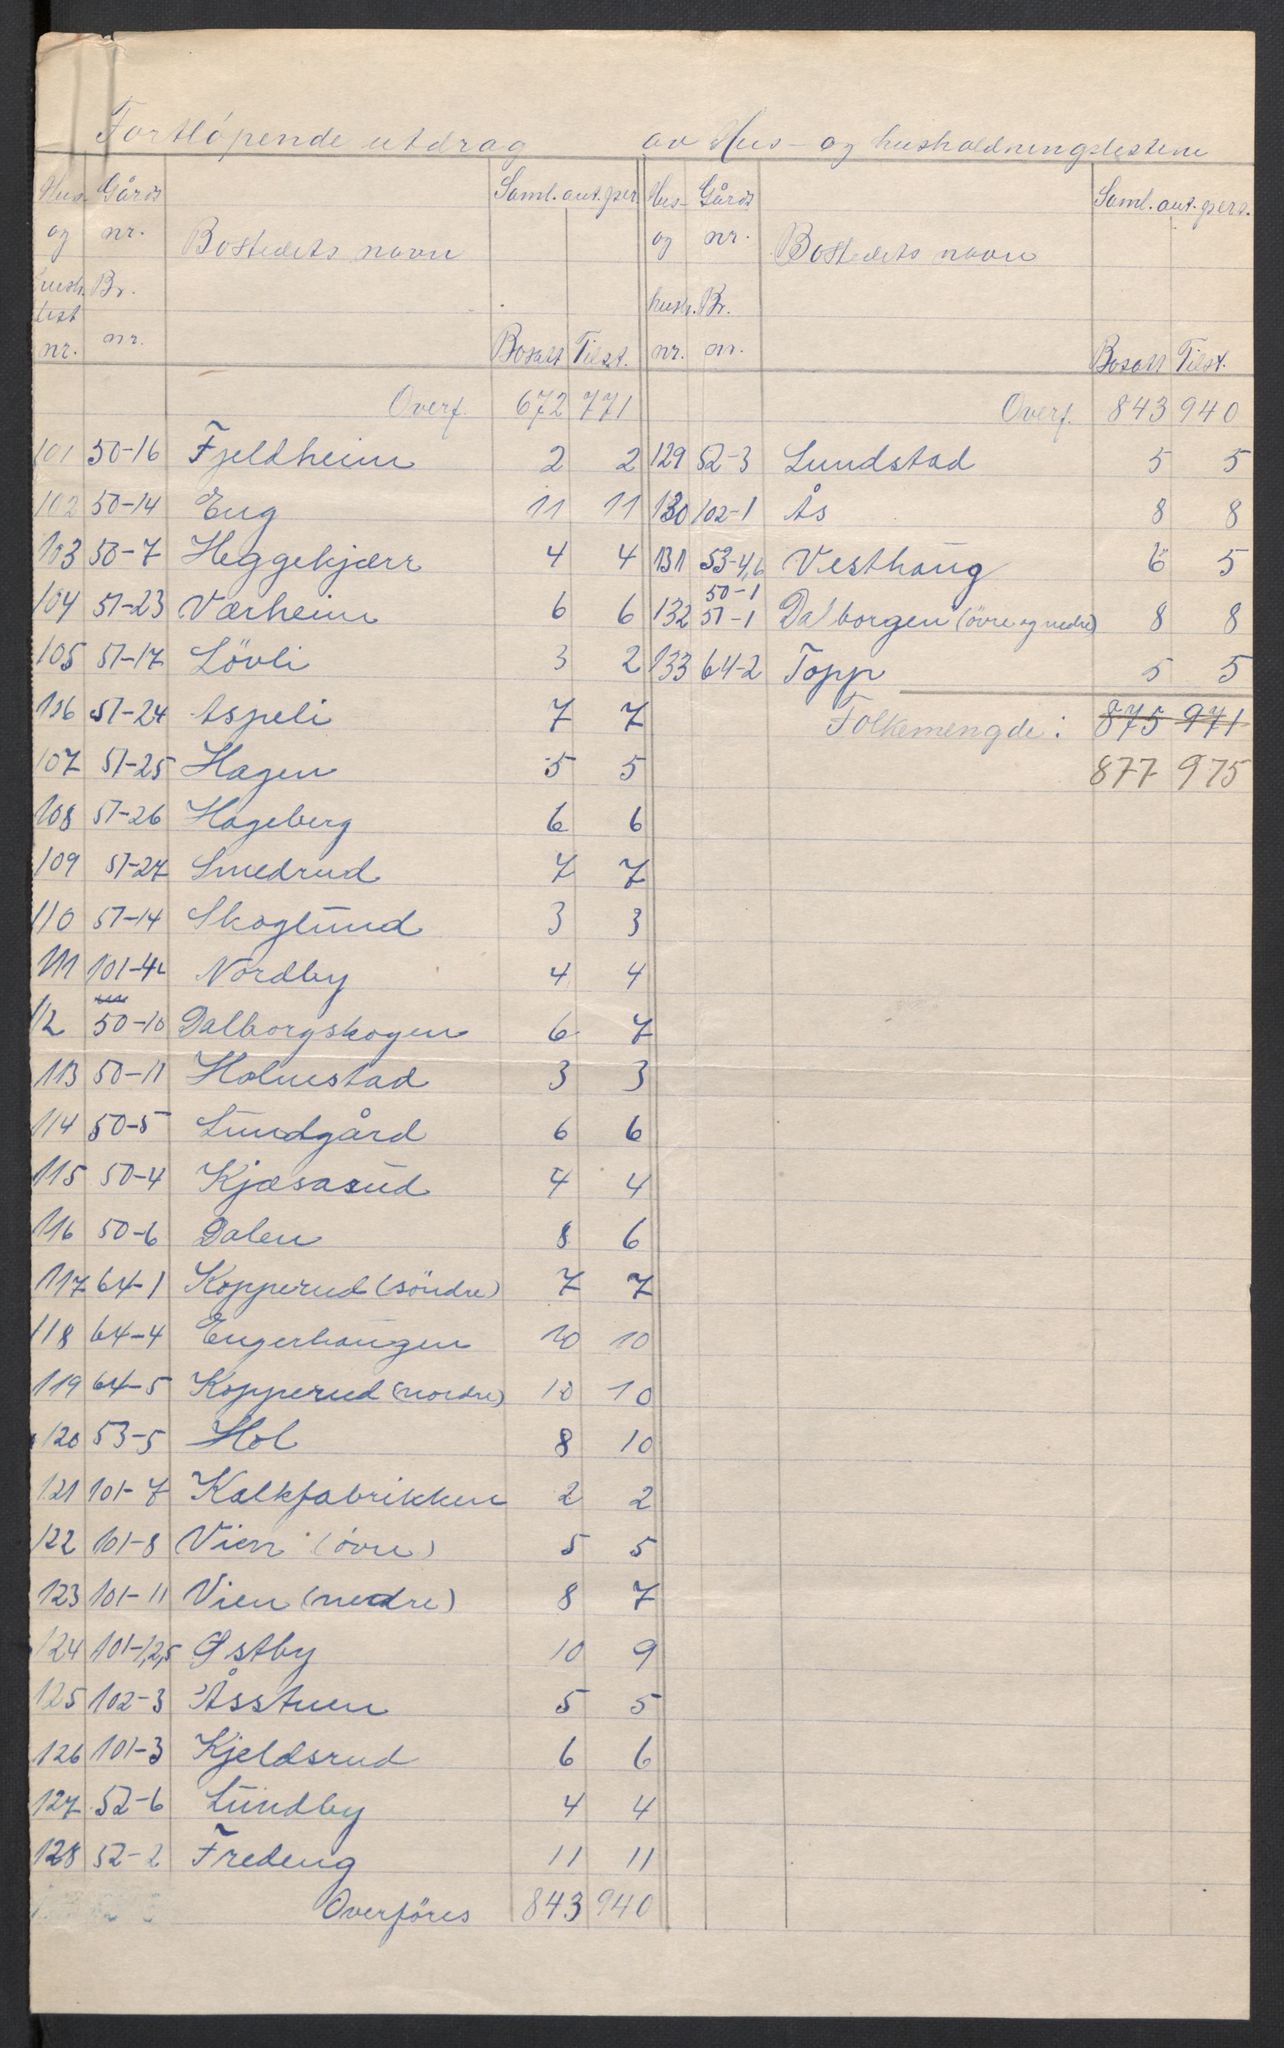 Fortlöpende utdrag av Hus- og husholdningslistene
Hus- og hush. list nr.
Gårds nr. Br. nr.
Bostedets navn
Saml. ant. pers.
Bosatt Tilst.
Overf. 672 771
101 50-16 Fjeldheim 2 2
102 50-14 Eng 11 11
103 50-7 Heggekjærr 4 4
104 51-23 Værheim 6 6
105 51-17 Lövli 3 2
106 51-24 Aspeli 7 7
107 51-25 Hagen 5 5
108 51-26 Hageberg 6 6
109 51-27 Smedrud 7 7
110 51-14 Skoglund 3 3
111 101-4 Nordby 4 4
112 50-10 Dalborgskogen 6 7
113 50-11 Holmestad 3 3
114 50-5 Lundgård 6 6
115 50-4 Kjæsasud 4 4
116 50-6 Dalen 8 6
117 64-1 Kopperud (söndre) 7 7
118 64-4 Engerhaugen 10 10
119 64-5 Kopperud (nordre) 10 10
120 53-5 Hol 8 10
121 101-7 Kalkfabrikken 2 2
122 101-8 Vien (övre) 5 5
123 101-11 Vien (nedre) 8 7
124 101-1,2,5 Østby 10 9
125 102-3 Åsstuen 5 5
126 101-3 Kjeldsrud 6 6
127 52-6 Lundby 4 4
128 52-2 Fredeng 11 11
Overföres 843 940
Hus- og hush. nr.
Gårds nr. Br. nr.
Bostedets navn
Saml. ant. pers.
Bosatt Tilst.
Overf. 843 940
129 52-3 Lundstad 5 5
130 102-1 Ås 8 8
131 53-4,6 Vesthaug 6 5
50-1
132 51-1 Dalborgen (övre og nedre) 8 8
133 64-2 Topp 5 5
Folkemengde: 875 971
877 975